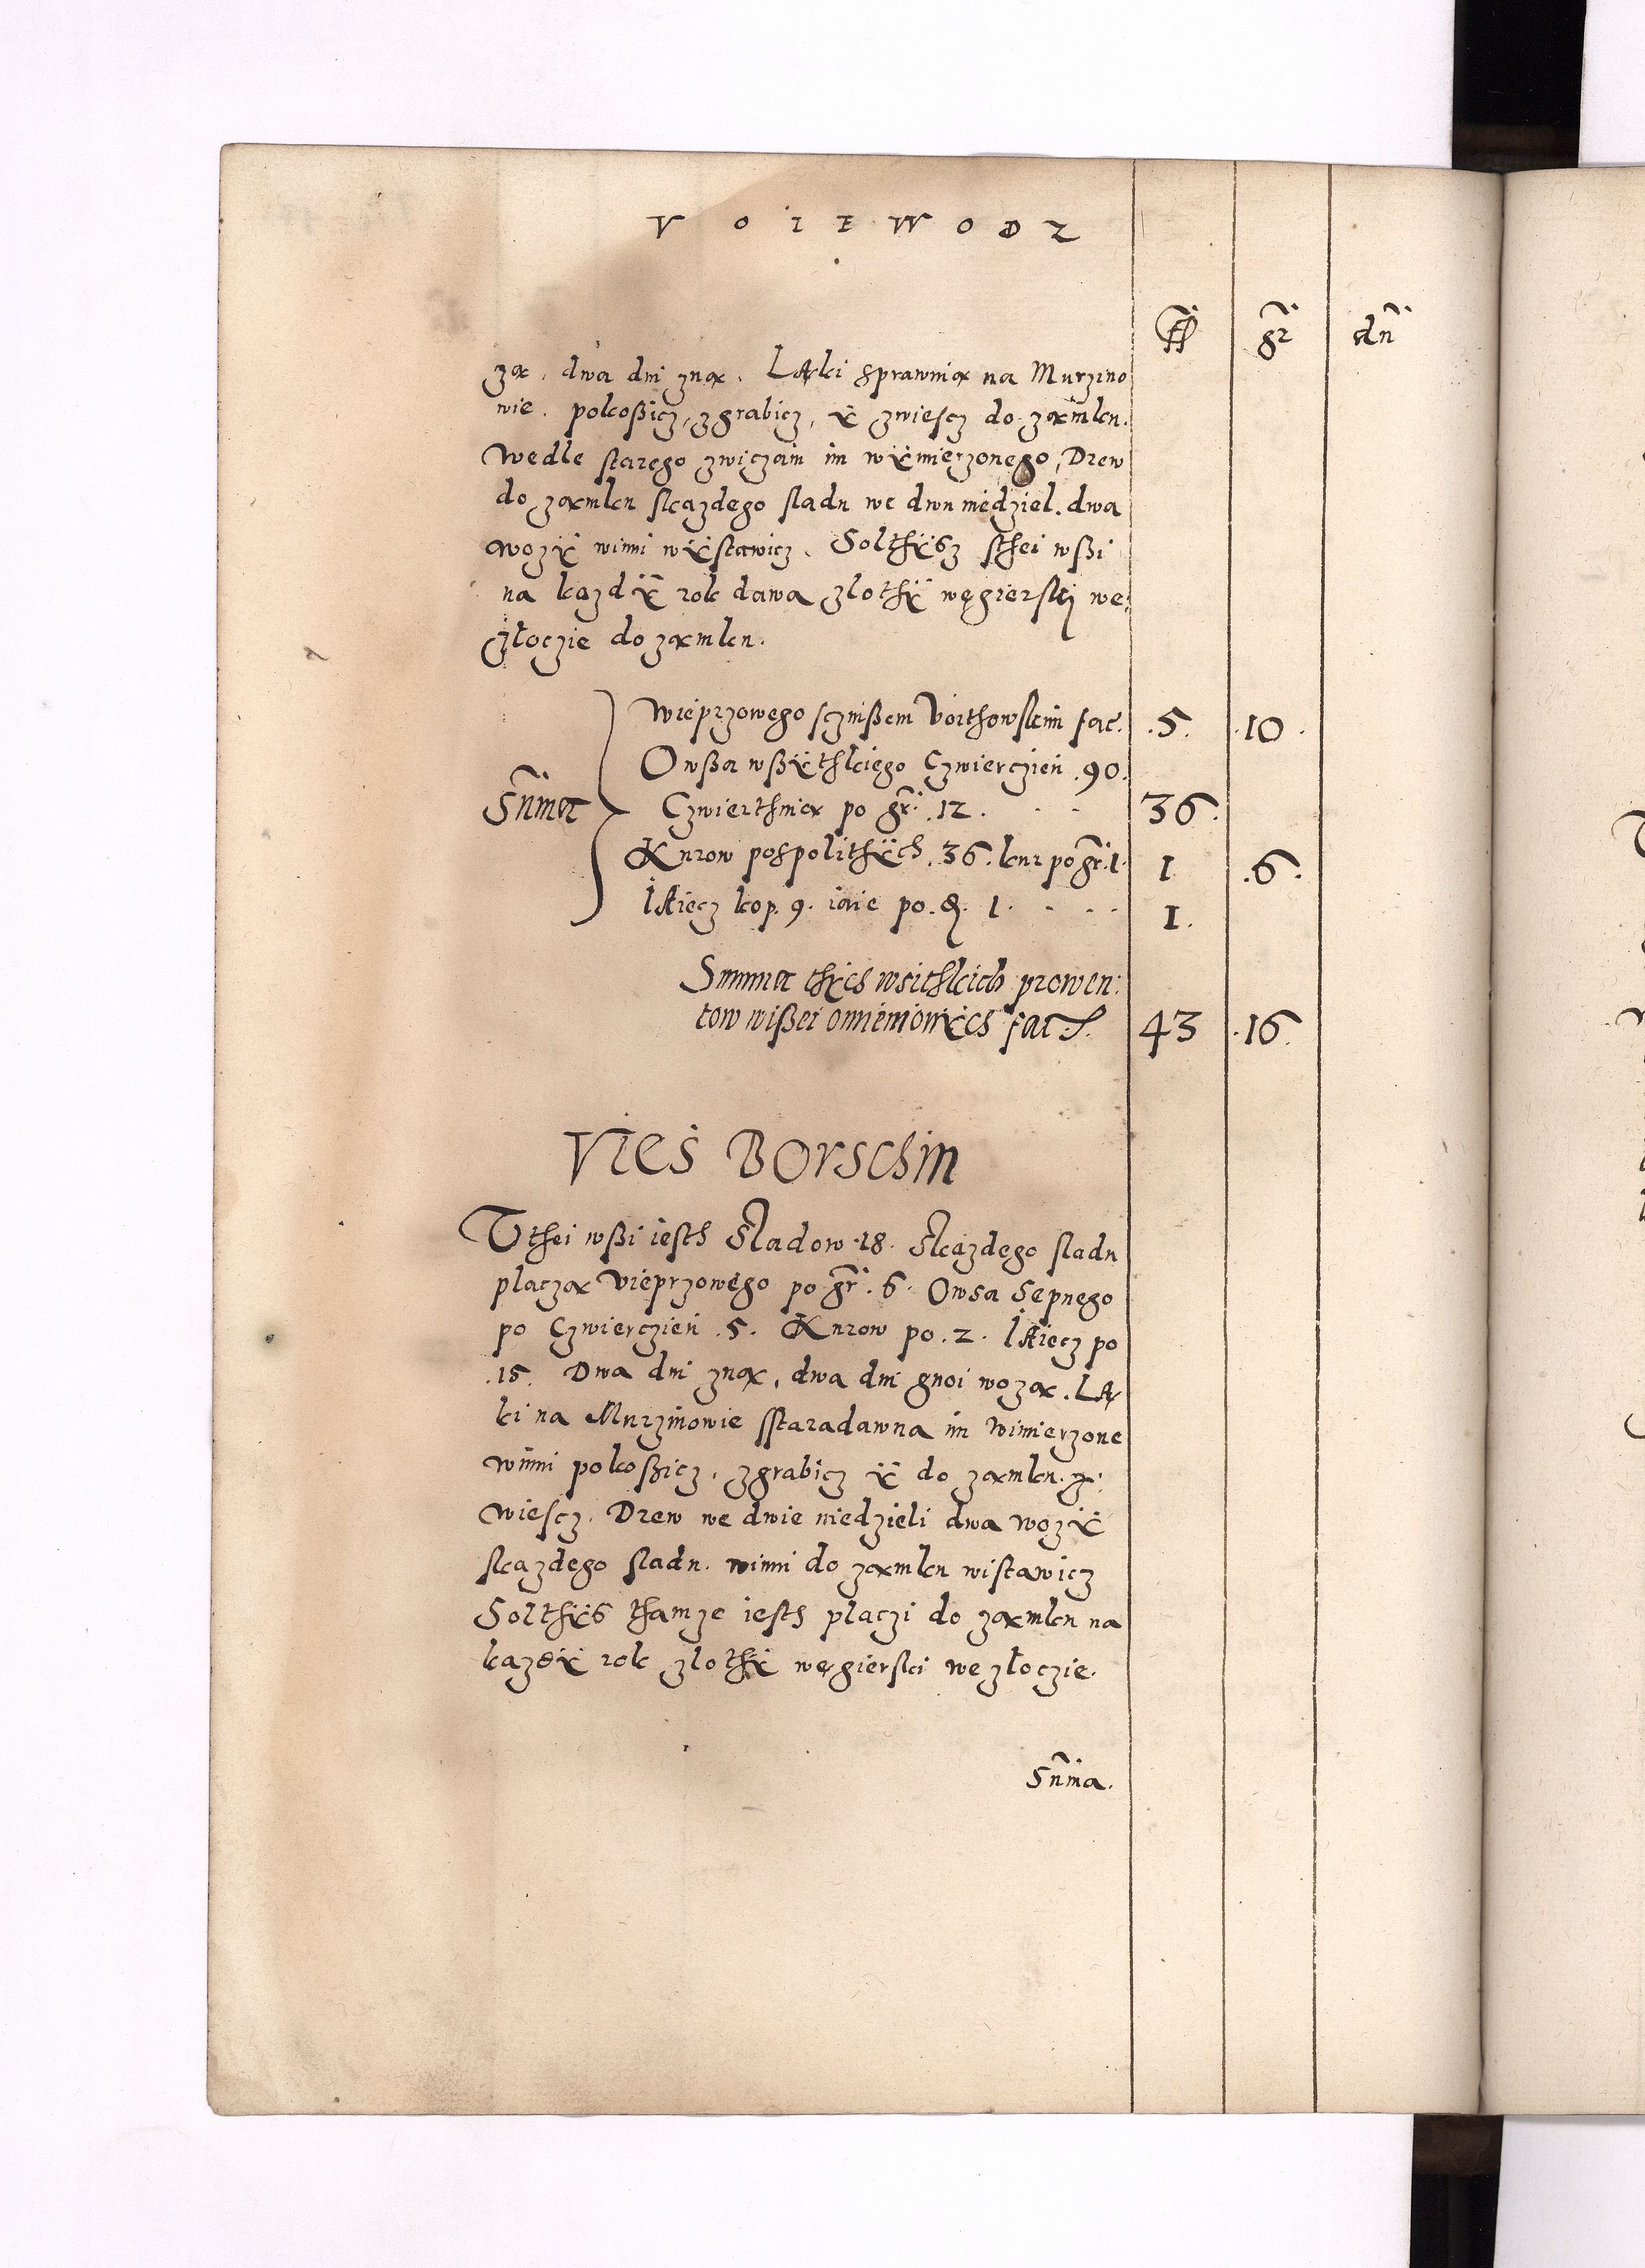 VOIEWODZ
fl gr dn
zą, dwa dni żną. Łąki sprawnią na Murzino
wie. pokoßicz, zgrabicz, ÿ zwiescz do zamku.
Wedle starego zwiczaiu im wÿmierzonego, Drew
do zamku skazdego sladu we dwu niedziel. dwa
wozÿ winni wÿstawicz. Solthÿsz sthei wßi
na kazdÿ rok dawa zlothÿ węgierski we
złoczie do zamku.
Wieprzowego sczinßem Voithowskim fac. .5. .10.
Owßa wßÿthkiego Czwierczien .90.
Sum̃a Czwierthnia po gr̃. .12. . . 36.
Kurow pospolithÿch .36. kur po gr̃. 1. 1 .6.
Iaiecz kop. 9. iaie po. ₰. 1. . . . 1.
Summa thÿch wsithkich prowen:
tow wißei omienionÿch fac. 43 .16.
Vies Borschin
Tthei wßi iesth Sladow .18. Skazdego sladu
placzą vieprzowego po gr̃. 6. Owsa Sepnego
po Czwierczien .5. Kurow po .2. Iaiecz po
.15. Dwa dni żną, dwa dni gnoi wozą. Łą
ki na Murzinowie sstaradawna im wimierzone
winni pokoßicz, zgrabicz ÿ do zamku z:
wiescz. Drew we dwie niedzieli dwa wozÿ
skazdego sladu. winni do zamku wistawicz
Solthÿs thamze iesth placzi do zamku na
kazdÿ rok zlothÿ węgierski we złoczie.
Sum̃a.